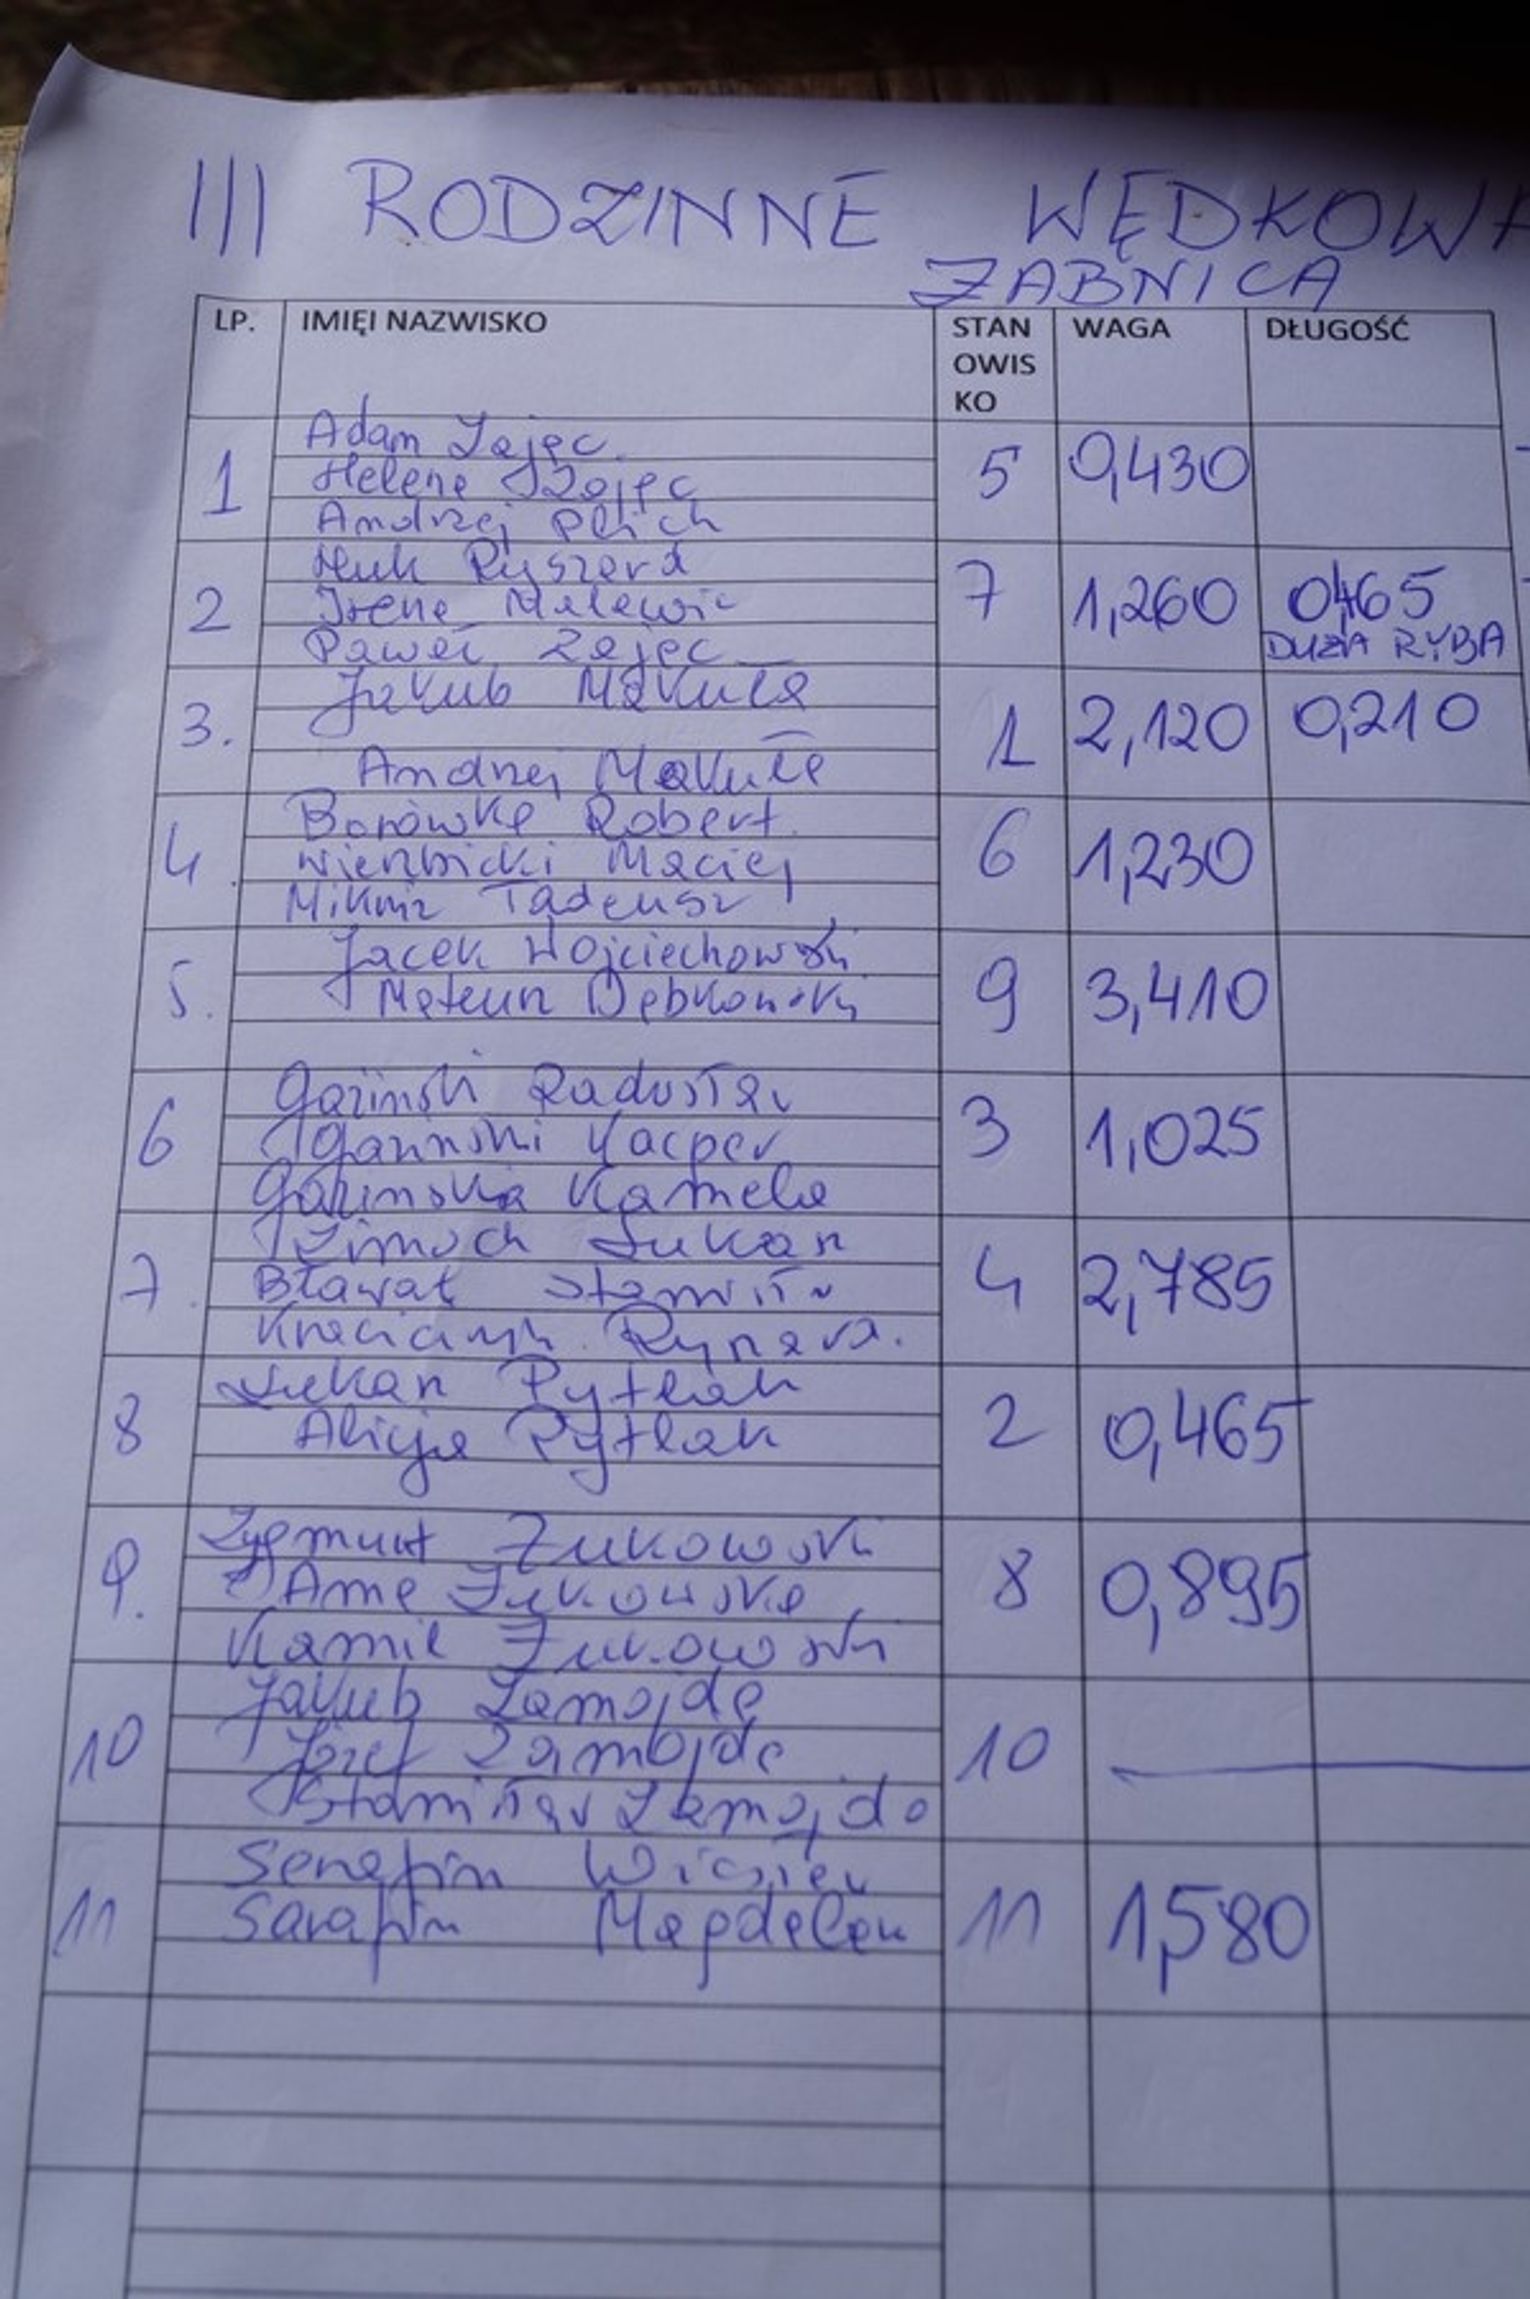 III RODZINNE WĘDKOWA
ŻABNICA
LP. IMIĘI NAZWISKO STAN OWIS KO WAGA DŁUGOŚĆ
Adam Zając
1 Helena Zając 5 0,430
Andrzej Plich
Huk Ryszard
2 Irena Malewic 7 1,260 0,465
DUŻA RYBA
Paweł Zając
Jakub Makuła
3. 1 2,120 0,210
Andrzej Makuła
Borówka Robert
4. Wierzbicki Maciej 6 1,230
Tadeusz
Jacek Wojciechowski
5. Mateusz Dębkowski 9 3,410
Gaziński Radosław
6 Gaziński Kacper 3 1,025
Gazińska Kamela
Zimoch Łukasz
7. Bławat Stanisław 4 2,785
Ryszard.
Łukasz Pytlak
8 Alicja Pytlak 2 0,465
Zygmunt Żukowski
9. Anna Żukowska 8 0,895
Kamil Żukowski
Jakub Zamojda
10 Józef Zamojda 10
Stanisław Zamojda
Serafin Wiesław
11 Sarafin Magdalena 11 1,580